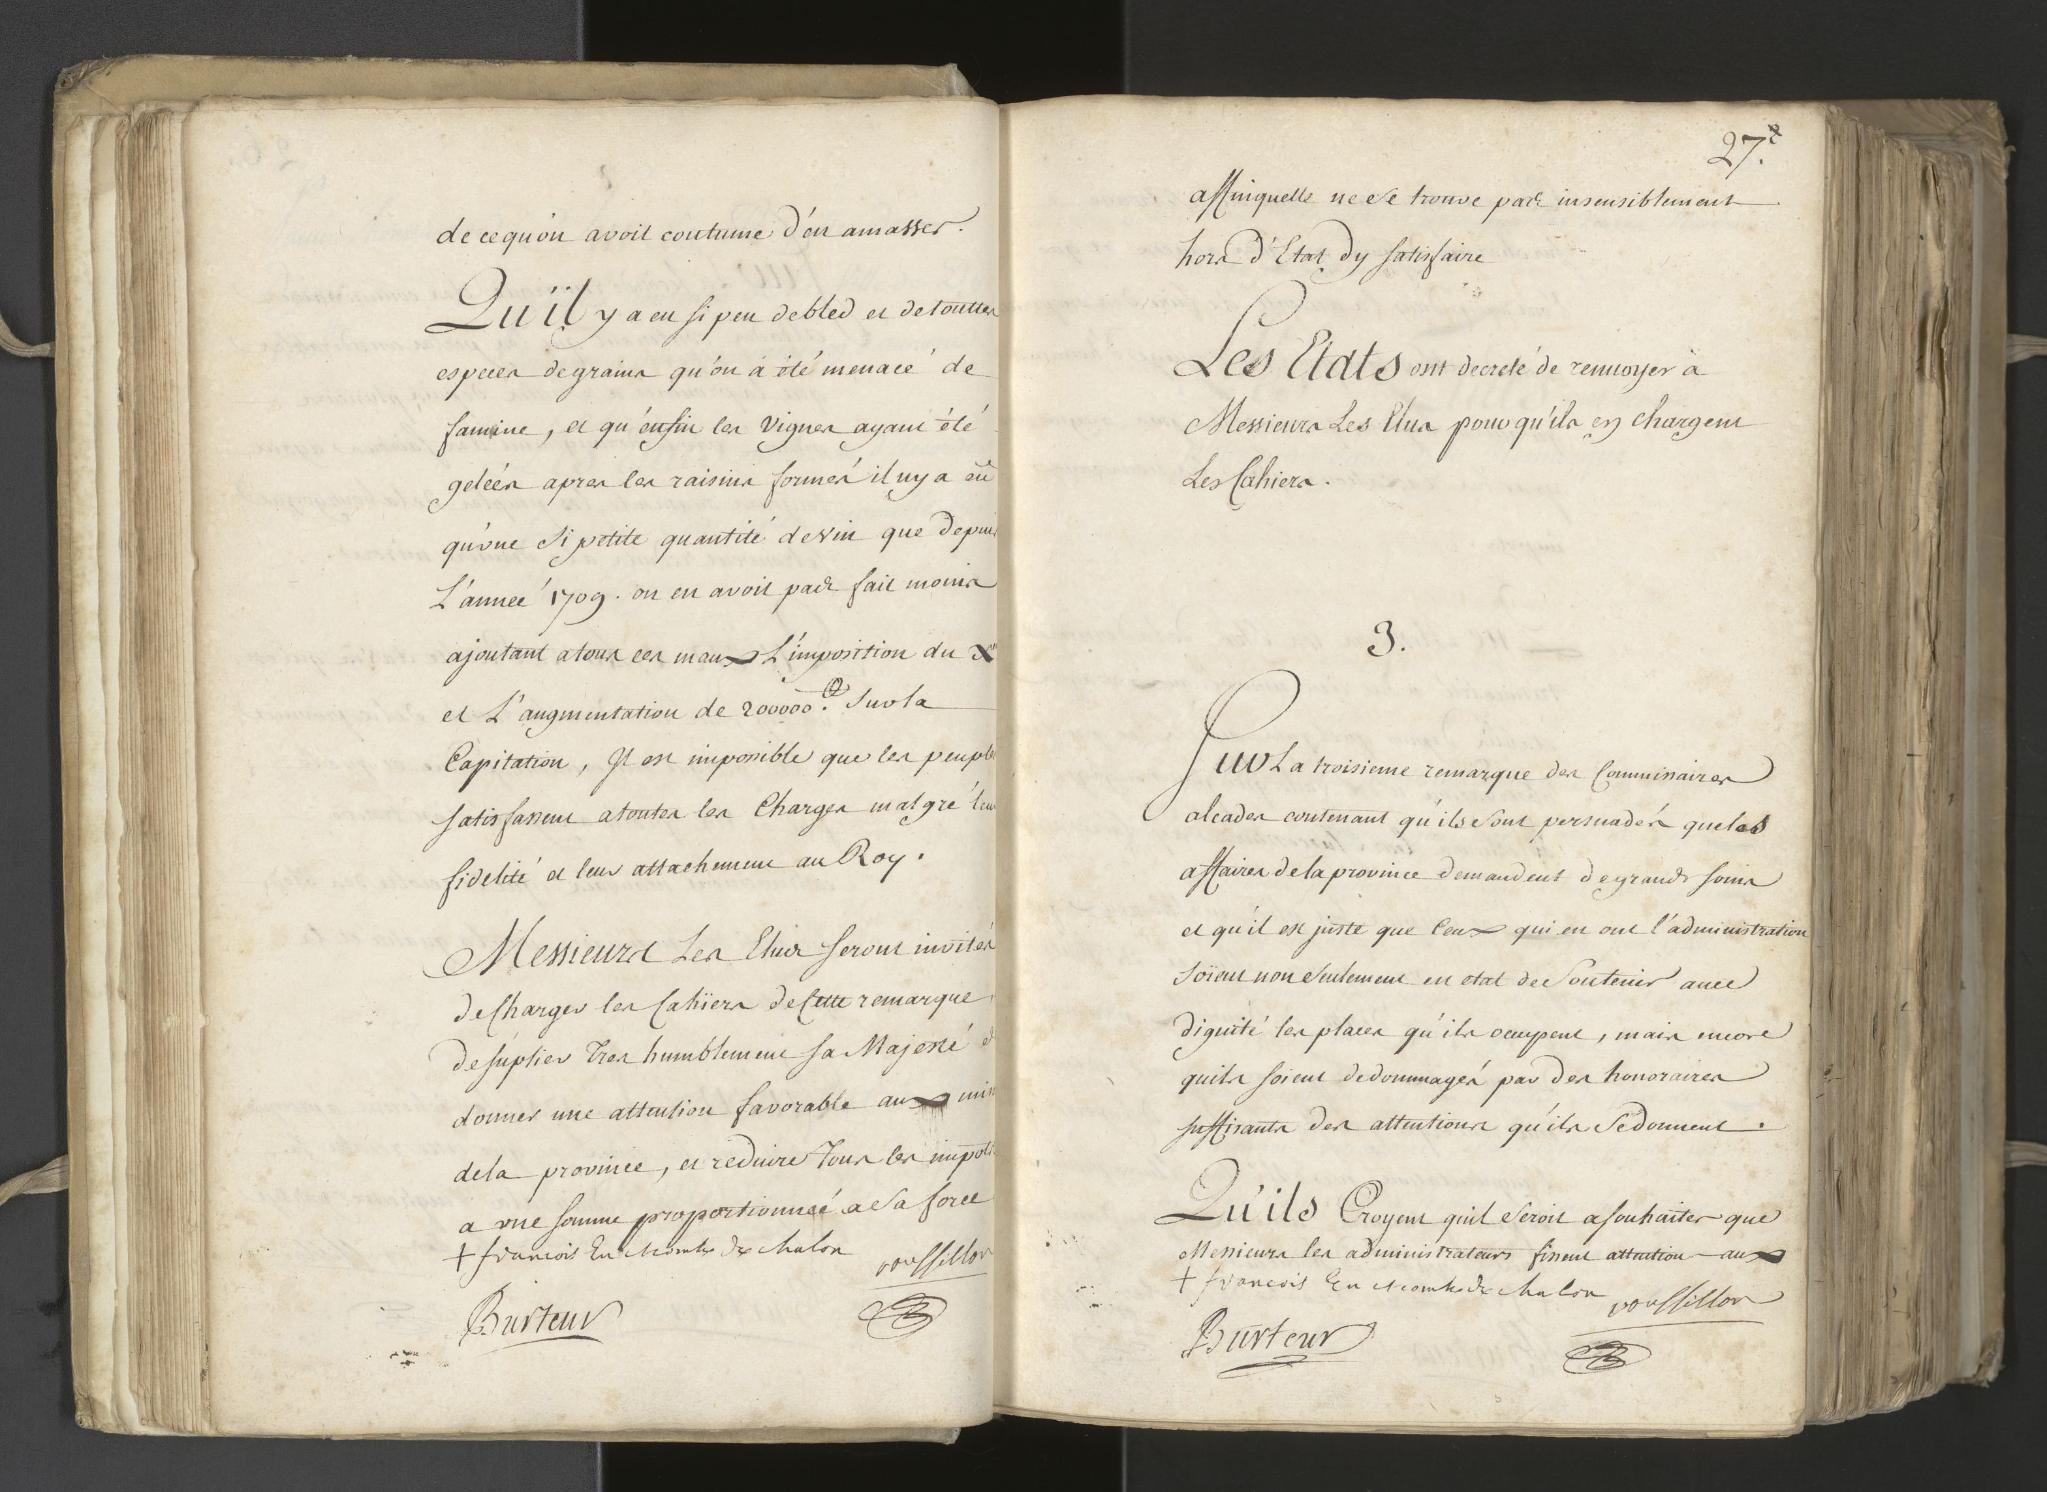 de ce qu'on avoit coutume d'en amasser.
Qu'il y a eu si peu de bled et de touttes
especes de grains qu'on à été menacé de
famine, et qu'enfin les vignes ayant été
gelées apres les raisins formés il ny a eû
qu'une si petite quantité de vin que depuis
L'année 1709. on en avoit pas fait moins
ajoutant a tous ces maux L'imposition du X.e
et L'augmentation de 200000.# sur la
Capitation, Il est impossible que les peuples
satisfassent a toutes les Charges malgré leur
fidelité et leur attachement au Roy.
Messieurs Les Elus seront invités
de Charger les Cahiers de Cette remarque
de suplier Tres humblement sa Majesté de
donner une attention favorable aux
de la province, et reduire Tous les impots
a une somme proportionnée a sa force
+ françois Eu. comte de chalon
roussillon
Burteur
27.e
affinquelle ne se trouve pas insensiblement
hors d'Etat dy satisfaire
Les Etats ont decreté de renvoyer à
Messieurs Les Elus pour qu'ils en chargent
Les Cahiers.
3.
Sur La troisieme remarque des Commissaires
alcades contenant qu'ils sont persuadés que les
affaires de la province demandent de grands soins
et qu'il est juste que Ceux qui en ont l'administration
soient non seulement en etat de Soutenir avec
dignité les places qu'ils ocupent, mais encore
quils soient dedommagés par des honoraires
suffisants des attentions qu'ils se donnent.
Qu'ils Croyent quil seroit a souhaiter que
Messieurs les administrateurs fissent attention aux
+ françois Eu. comte de chalon
roussillon
Burteur